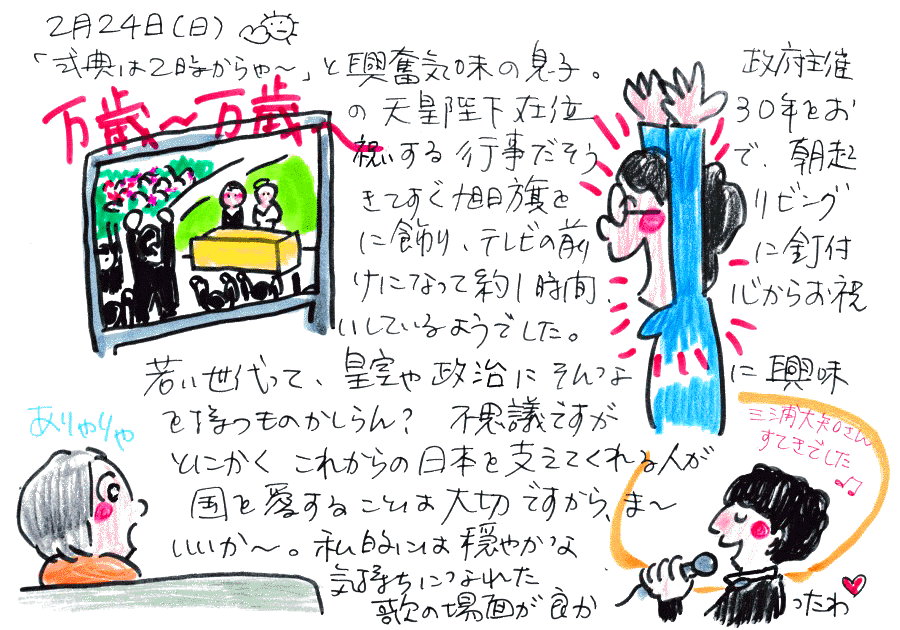 2月24日(日)
「式典は2時からや〜」と興奮気味の息子。 政府主催
万歳〜万歳〜
の天皇陛下在位 30年をお
祝いする行事だそう で、朝起
きてすぐ旭日旗を リビング
に飾り、テレビの前 に釘付
けになって約1時間、 心からお祝
いしているようでした。
若い世代って、皇室や政治にそんな に興味
を持つものかしらん? 不思議ですが
ありゃりゃ
三浦大知さん
すてきでした♫
とにかく これからの日本を支えてくれる人が
国を愛することは大切ですから、ま〜
いいか〜。私的には穏やかな
気持ちになれた
歌の場面が良か ったわ